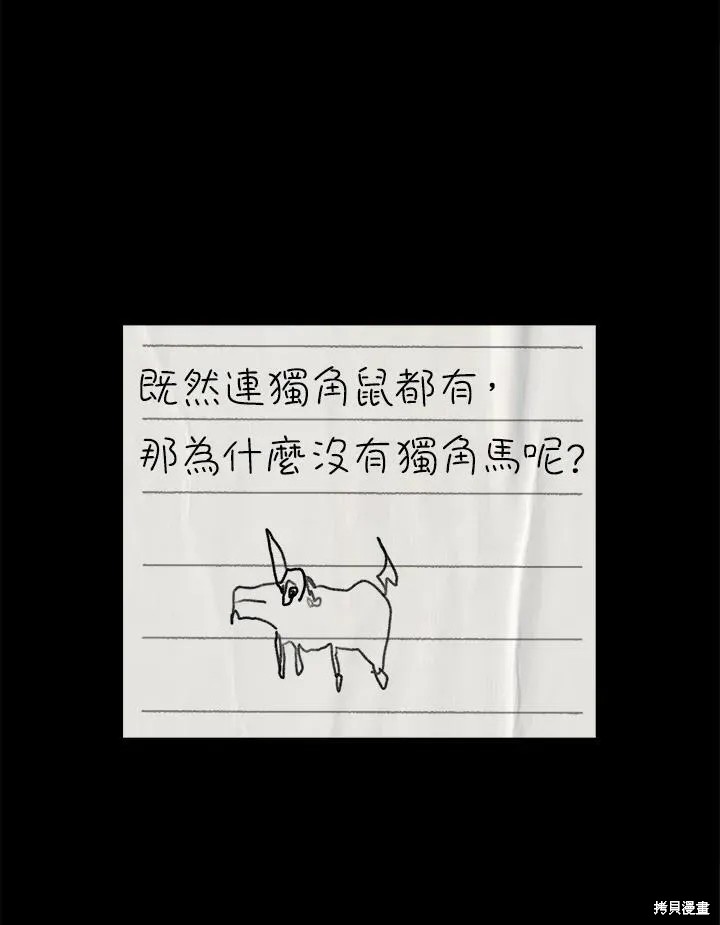 既然連獨角鼠都有，
那為什麼沒有獨角馬呢?
拷貝漫畫